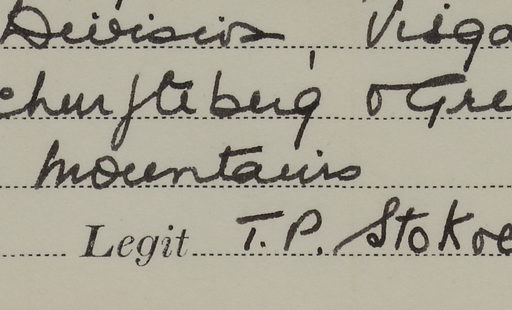 Division, Visga
churfteberg & Gre
Mountains
Legit T. P. Stokoe